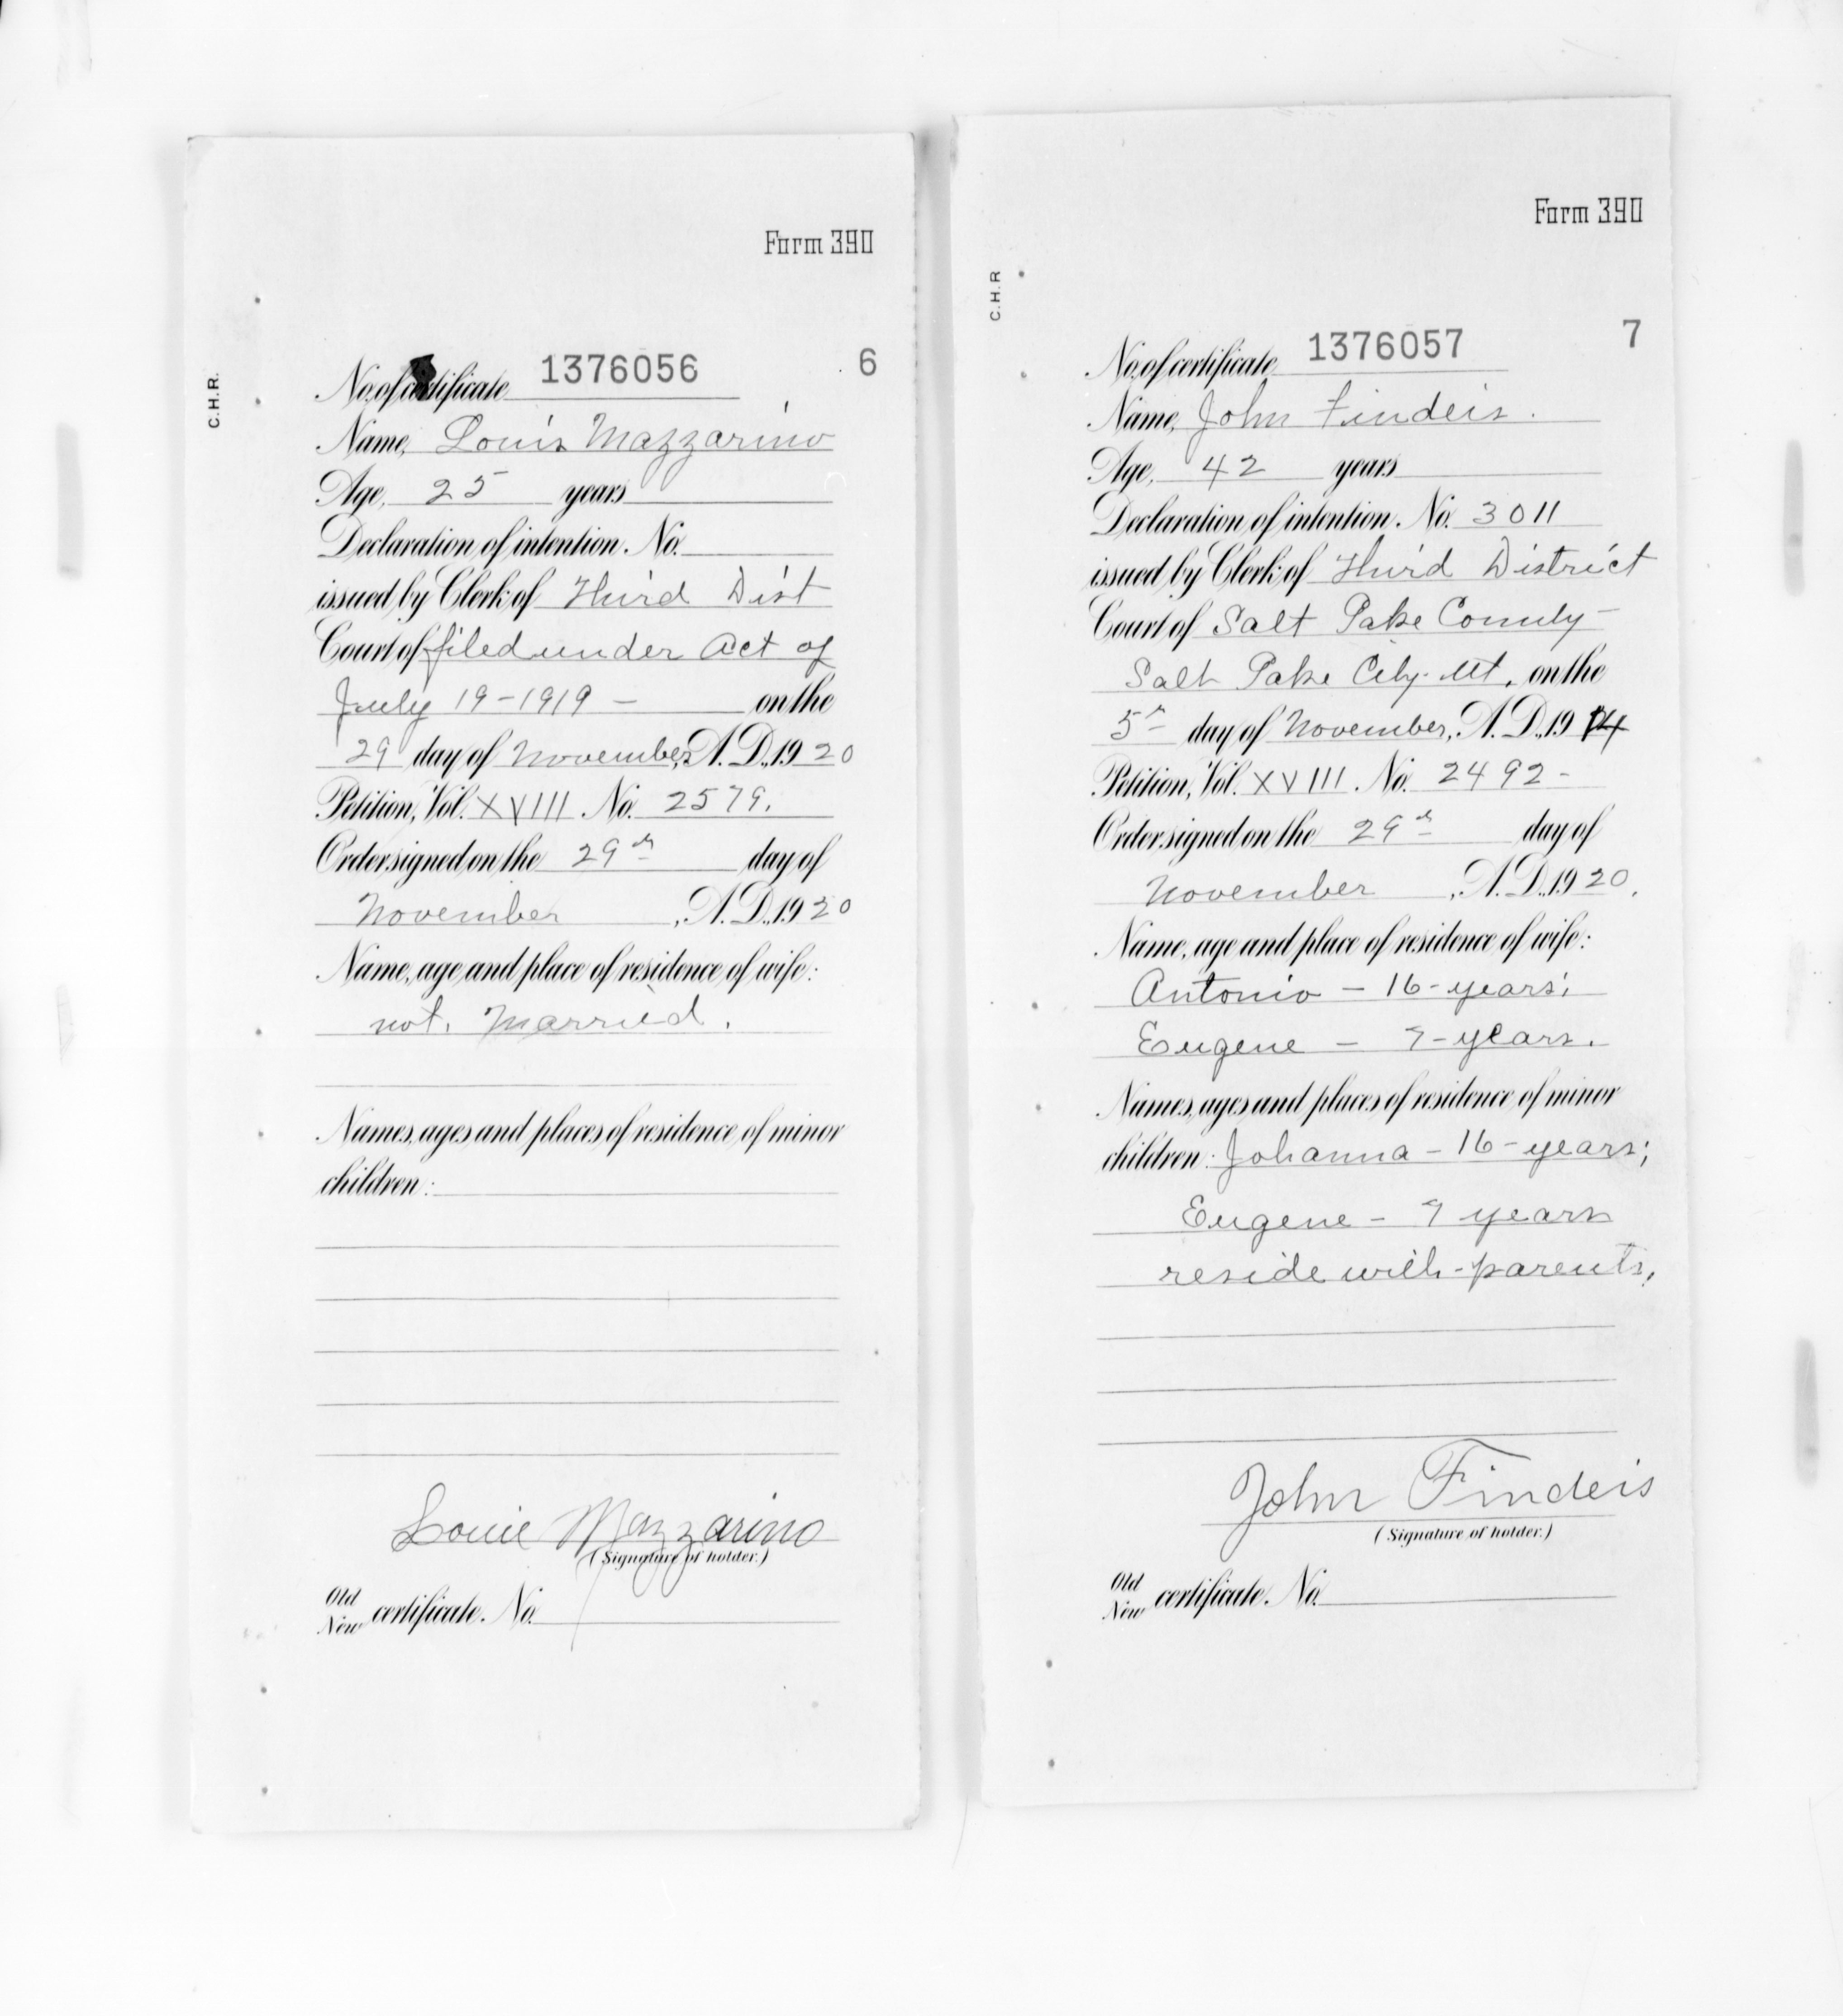 Form 390
C.H.R.
No. of certificate 1376056 6
Name, Louis Mazzarino
Age, 25 years
Declaration of intention. No.
issued by Clerk of Third Dist
Court of filed under Act of
July 19-1919 - on the
29 day of November, A. D., 19 20
Petition, Vol. XVIII. No. 2579.
Order signed on the 29th day of
November , A. D., 19 20
Name, age and place of residence of wife:
not. Married.
Names, ages and places of residence of minor
children:
Louie Mazzarino
(Signature of holder.)
Old
New certificate. No.
Form 390
C.H.R
No. of certificate 1376057 7
Name, John Findeis.
Age, 42 years
Declaration of intention. No. 3011
issued by Clerk of Third District
Court of Salt Lake County -
Salt Lake City. Ut. on the
5th day of November, A. D., 19 14
Petition, Vol. XVIII. No. 2492 -
Order signed on the 29th day of
November , A. D., 19 20.
Name, age and place of residence of wife:
Antonio - 16 - years;
Eugene - 7 - years.
Names, ages and places of residence of minor
children: Johanna - 16 - years;
Eugene - 7 years
reside with - parents,
John Findeis
(Signature of holder.)
Old
New certificate. No.